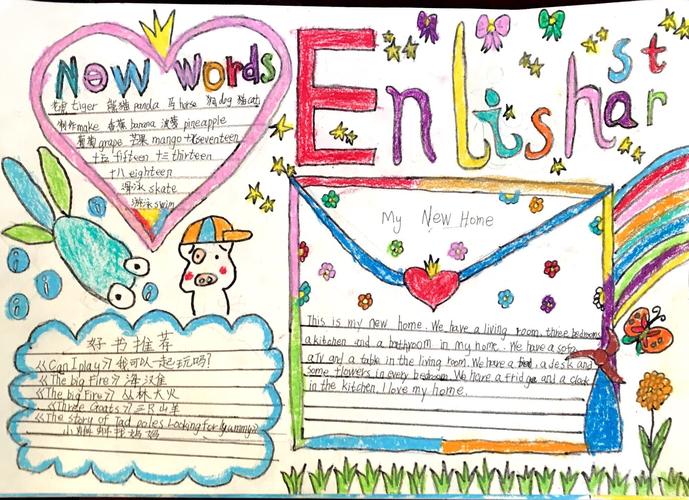 New words
老虎 tiger 熊猫 panda 马 horse 狗 dog 猫 cat
制作 make 香蕉 banana 菠萝 pineapple
葡萄 grape 芒果 mango 十七 seventeen
十五 fifteen 十三 thirteen
十八 eighteen
滑冰 skate
游泳 swim
Enlish
star
My New Home
This is my new home. We have a living room, three bedrooms
a kitchen and a bathroom in my home. We have a sofa
a TV and a table in the living room. We have a bed, a desk and
some flowers in every bedroom. We have a fridge and a clock
in the kitchen. I love my home.
好书推荐
《Can I play》我可以一起玩吗?
《The big Fire》
《The big Fire》丛林大火
《Three Goats》三只山羊
《The story of Tad poles Looking for
小蝌蚪找妈妈